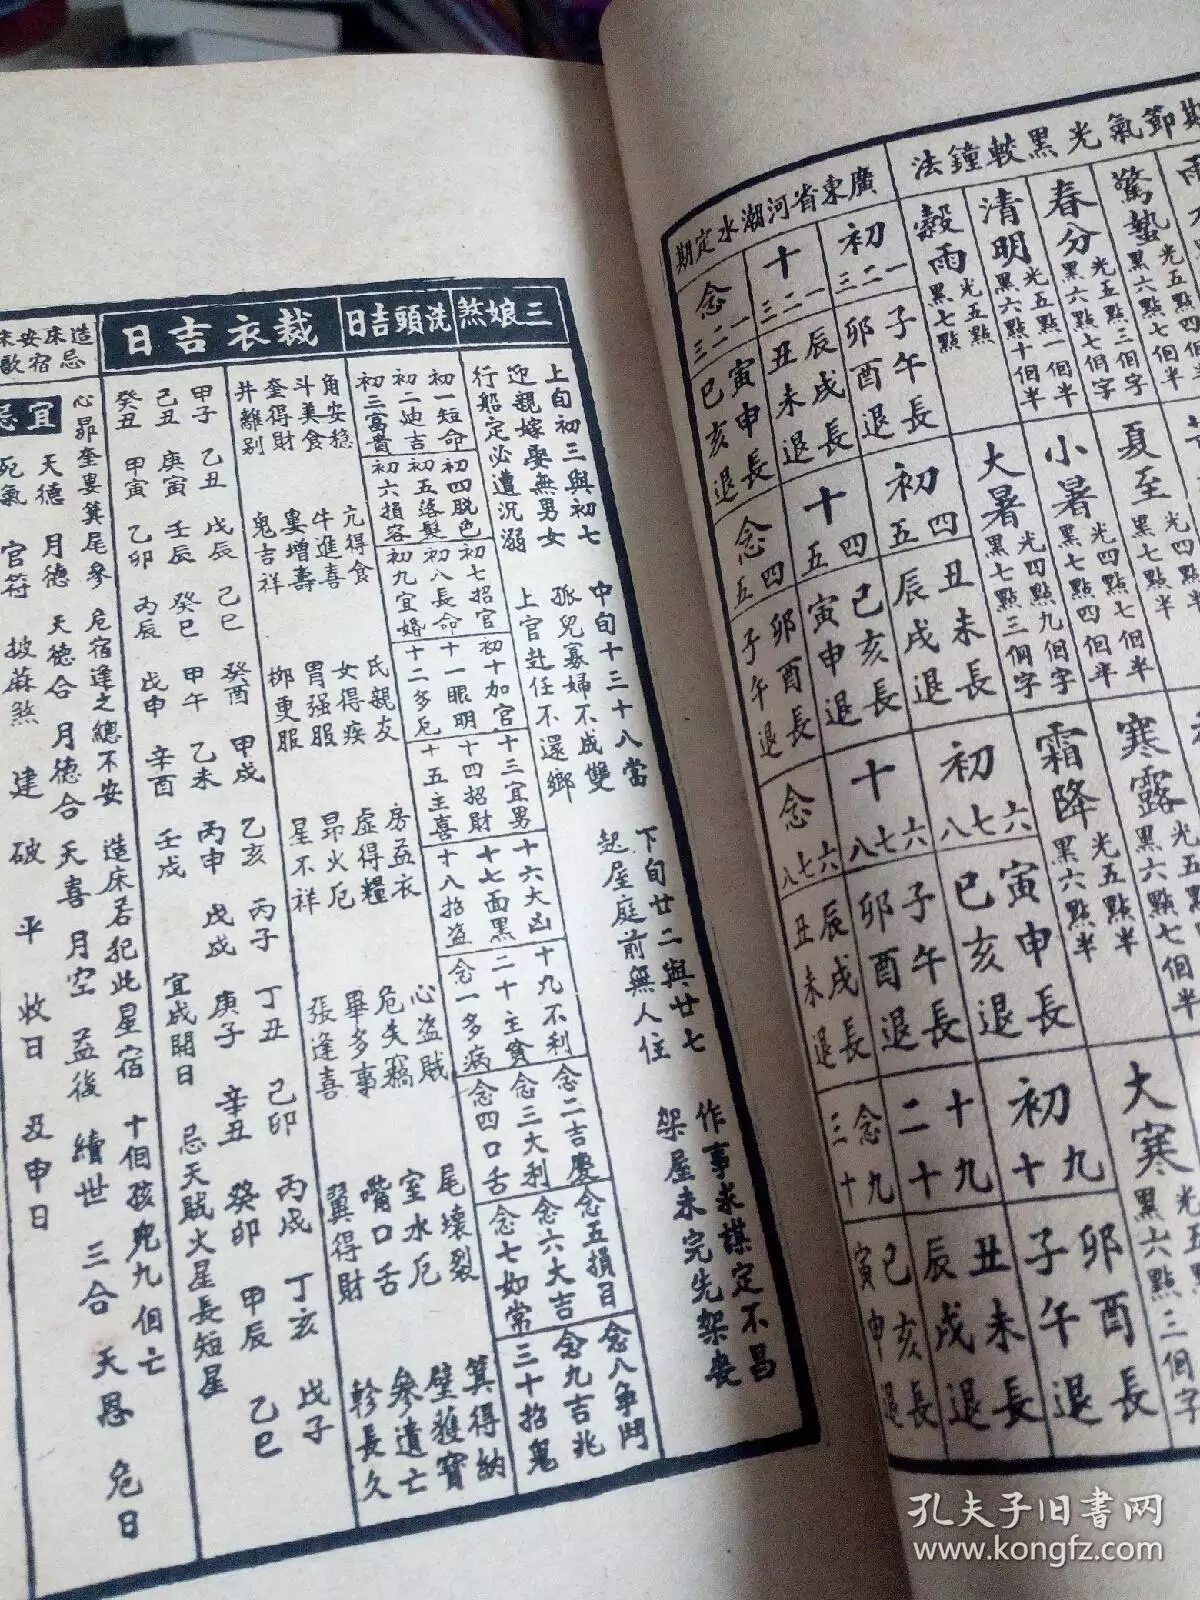 期節氣光黑較鐘法
驚蟄 光五點三個字 黑六點七個半
春分 光五點一個半 黑六點七個字
清明 光五點半 黑六點十個半
穀雨 光五點 黑七點
夏至
小暑 光四點七個半 黑七點四個半
大暑 光四點九個字 黑七點三個字
寒露
霜降 光五點半 黑六點半
大寒 黑六點三個字
廣東省河潮水定期
初一二三 子午長 卯酉退
十一二三 辰戌長 丑未退
念一二三 寅申長 巳亥退
初四五 丑未長 辰戌退
十四五 巳亥長 寅申退
念四五 卯酉長 子午退
初六七八 寅申長 巳亥退
十六七八 子午長 卯酉退
念六七八 辰戌長 丑未退
初九十 卯酉長 子午退
十九二十 丑未長 辰戌退
念九三十 巳亥長 寅申退
三娘煞
上旬初三與初七 中旬十三十八當 下旬廿二與廿七 作事求謀定不昌
迎親嫁娶無男女 孤兒寡婦不成雙 起屋庭前無人住 架屋未完先架喪
行船定必遭沉溺 上官赴任不還鄉
洗頭吉日
初一短命 初二迪吉 初三富貴
初四脱色 初五落髮 初六損容
初七招官 初八長命 初九宜婚
初十加官 十一眼明 十二多厄
十三宜男 十四招財 十五主喜
十六大凶 十七面黑 十八招盗
十九不利 二十主貧 念一多病
念二吉慶 念三大利 念四口舌
念五損目 念六大吉 念七如常
念八爭鬥 念九吉兆 三十招鬼
裁衣吉日
角安穩 亢得食 氐親友 房益衣 心盗賊 尾壞裂 箕得納
斗美食 牛進喜 女得疾 虚得糧 危失竊 室水厄 壁獲寶
奎得財 婁增壽 胃强服 昴火厄 畢多事 嘴口舌 參遺亡
井離别 鬼吉祥 柳更服 星不祥 張逢喜 翼得財 軫長久
甲子 乙丑 戊辰 己巳 癸酉 甲戌 乙亥 丙子 丁丑 己卯 丙戌 丁亥 戊子
己丑 庚寅 壬辰 癸巳 甲午 乙未 丙申 戊戌 庚子 辛丑 癸卯 甲辰 乙巳
癸丑 甲寅 乙卯 丙辰 戊申 辛酉 壬戌 宜成開日 忌天賊火星長短星
造床安床
忌宿歌
心昴奎婁箕尾參 危宿逢之總不安 造床若犯此星宿 十個孩兒九個亡
宜 天德 月德 天德合 月德合 天喜 月空 益後 續世 三合 天恩 危日
忌 死氣 官符 披蔴煞 建 破 平 收日 及申日
孔夫子旧书网
www.kongfz.com